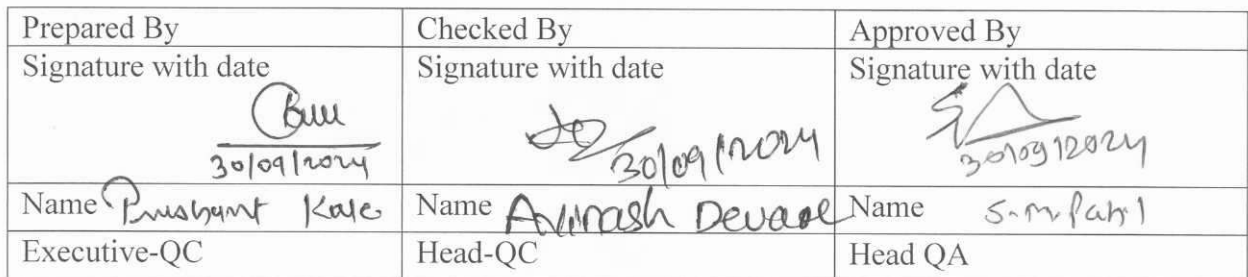 Prepared By Checked By Approved By
Signature with date Signature with date Signature with date
30/09/2024 30/09/2024 30/09/2024
Name Prashant Kale Name Avinash Devare Name S.M. Patil
Executive-QC Head-QC Head QA